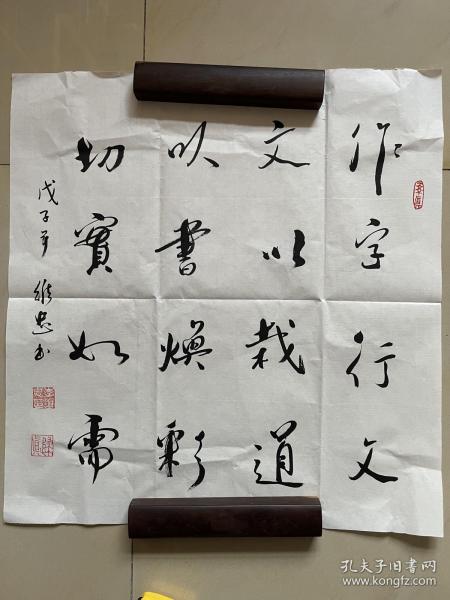 作字行文
文以栽道
以書煥彩
切實如需
戊子年 維忠書
孔夫子旧书网
www.kongfz.com